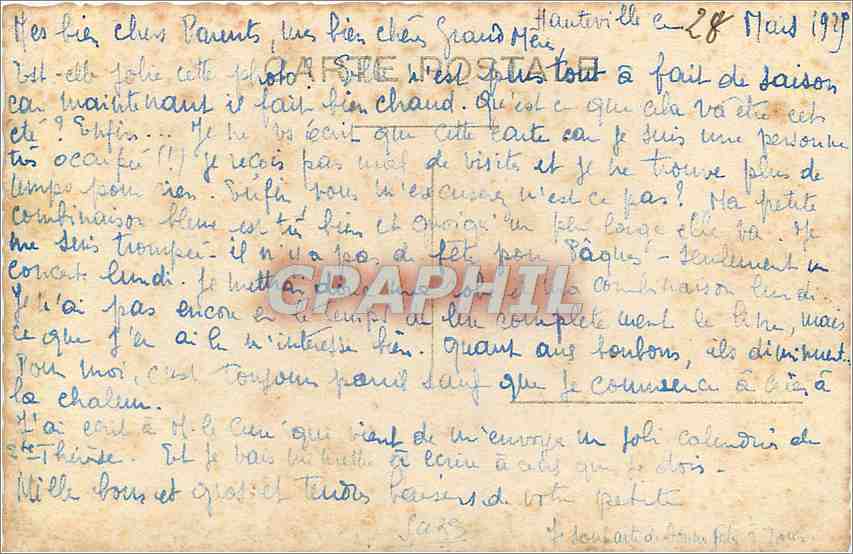 Hauteville ce 28 Mars 1929
Mes bien chers Parents, ma bien chère Grand Mère,
CARTE POSTALE
Est-elle jolie cette photo! Elle n'est plus tout à fait de saison
car maintenant il fait bien chaud. Qu'est ce que cela va être cet
été? Enfin... Je ne vs écrit que cette carte car je suis une personne
très occupée (!) je reçois pas mal de visites et je ne trouve plus de
temps pour rien. Enfin vous m'excusez n'est ce pas? Ma petite
combinaison bleue est très bien et quoiqu'un peu large elle va. Je
me suis trompée - il n'y a pas de fête pour Pâques - seulement un
concert lundi. Je mettrai ma robe et ma combinaison lundi.
CPAPHIL
Je n'ai pas encore eu le temps de lire complètement le livre, mais
ce que j'en ai lu m'intéresse bien. Quant aux bonbons, ils diminuent.
Pour moi, c'est toujours pareil sauf que je commence à
la chaleur.
J'ai écrit à M. le Curé qui vient de m'envoyer un joli calendrier de
Ste Thérèse. Et je vais me mettre à écrire à ceux que je dois -
Mille bons et gros et tendres baisers de votre petite